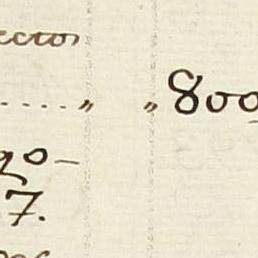 ector
..... " " 800
go-
7.